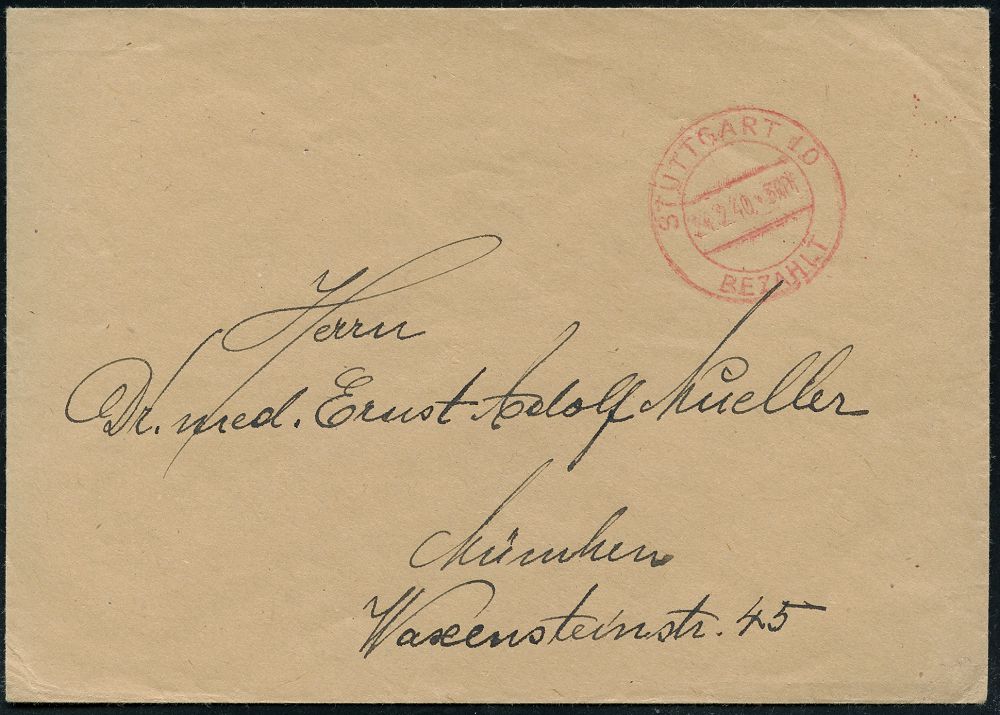 STUTTGART 10
24.2.40.
BEZAHLT
Herrn
Dr. med. Ernst Adolf Mueller
München
Waxensteinstr. 45